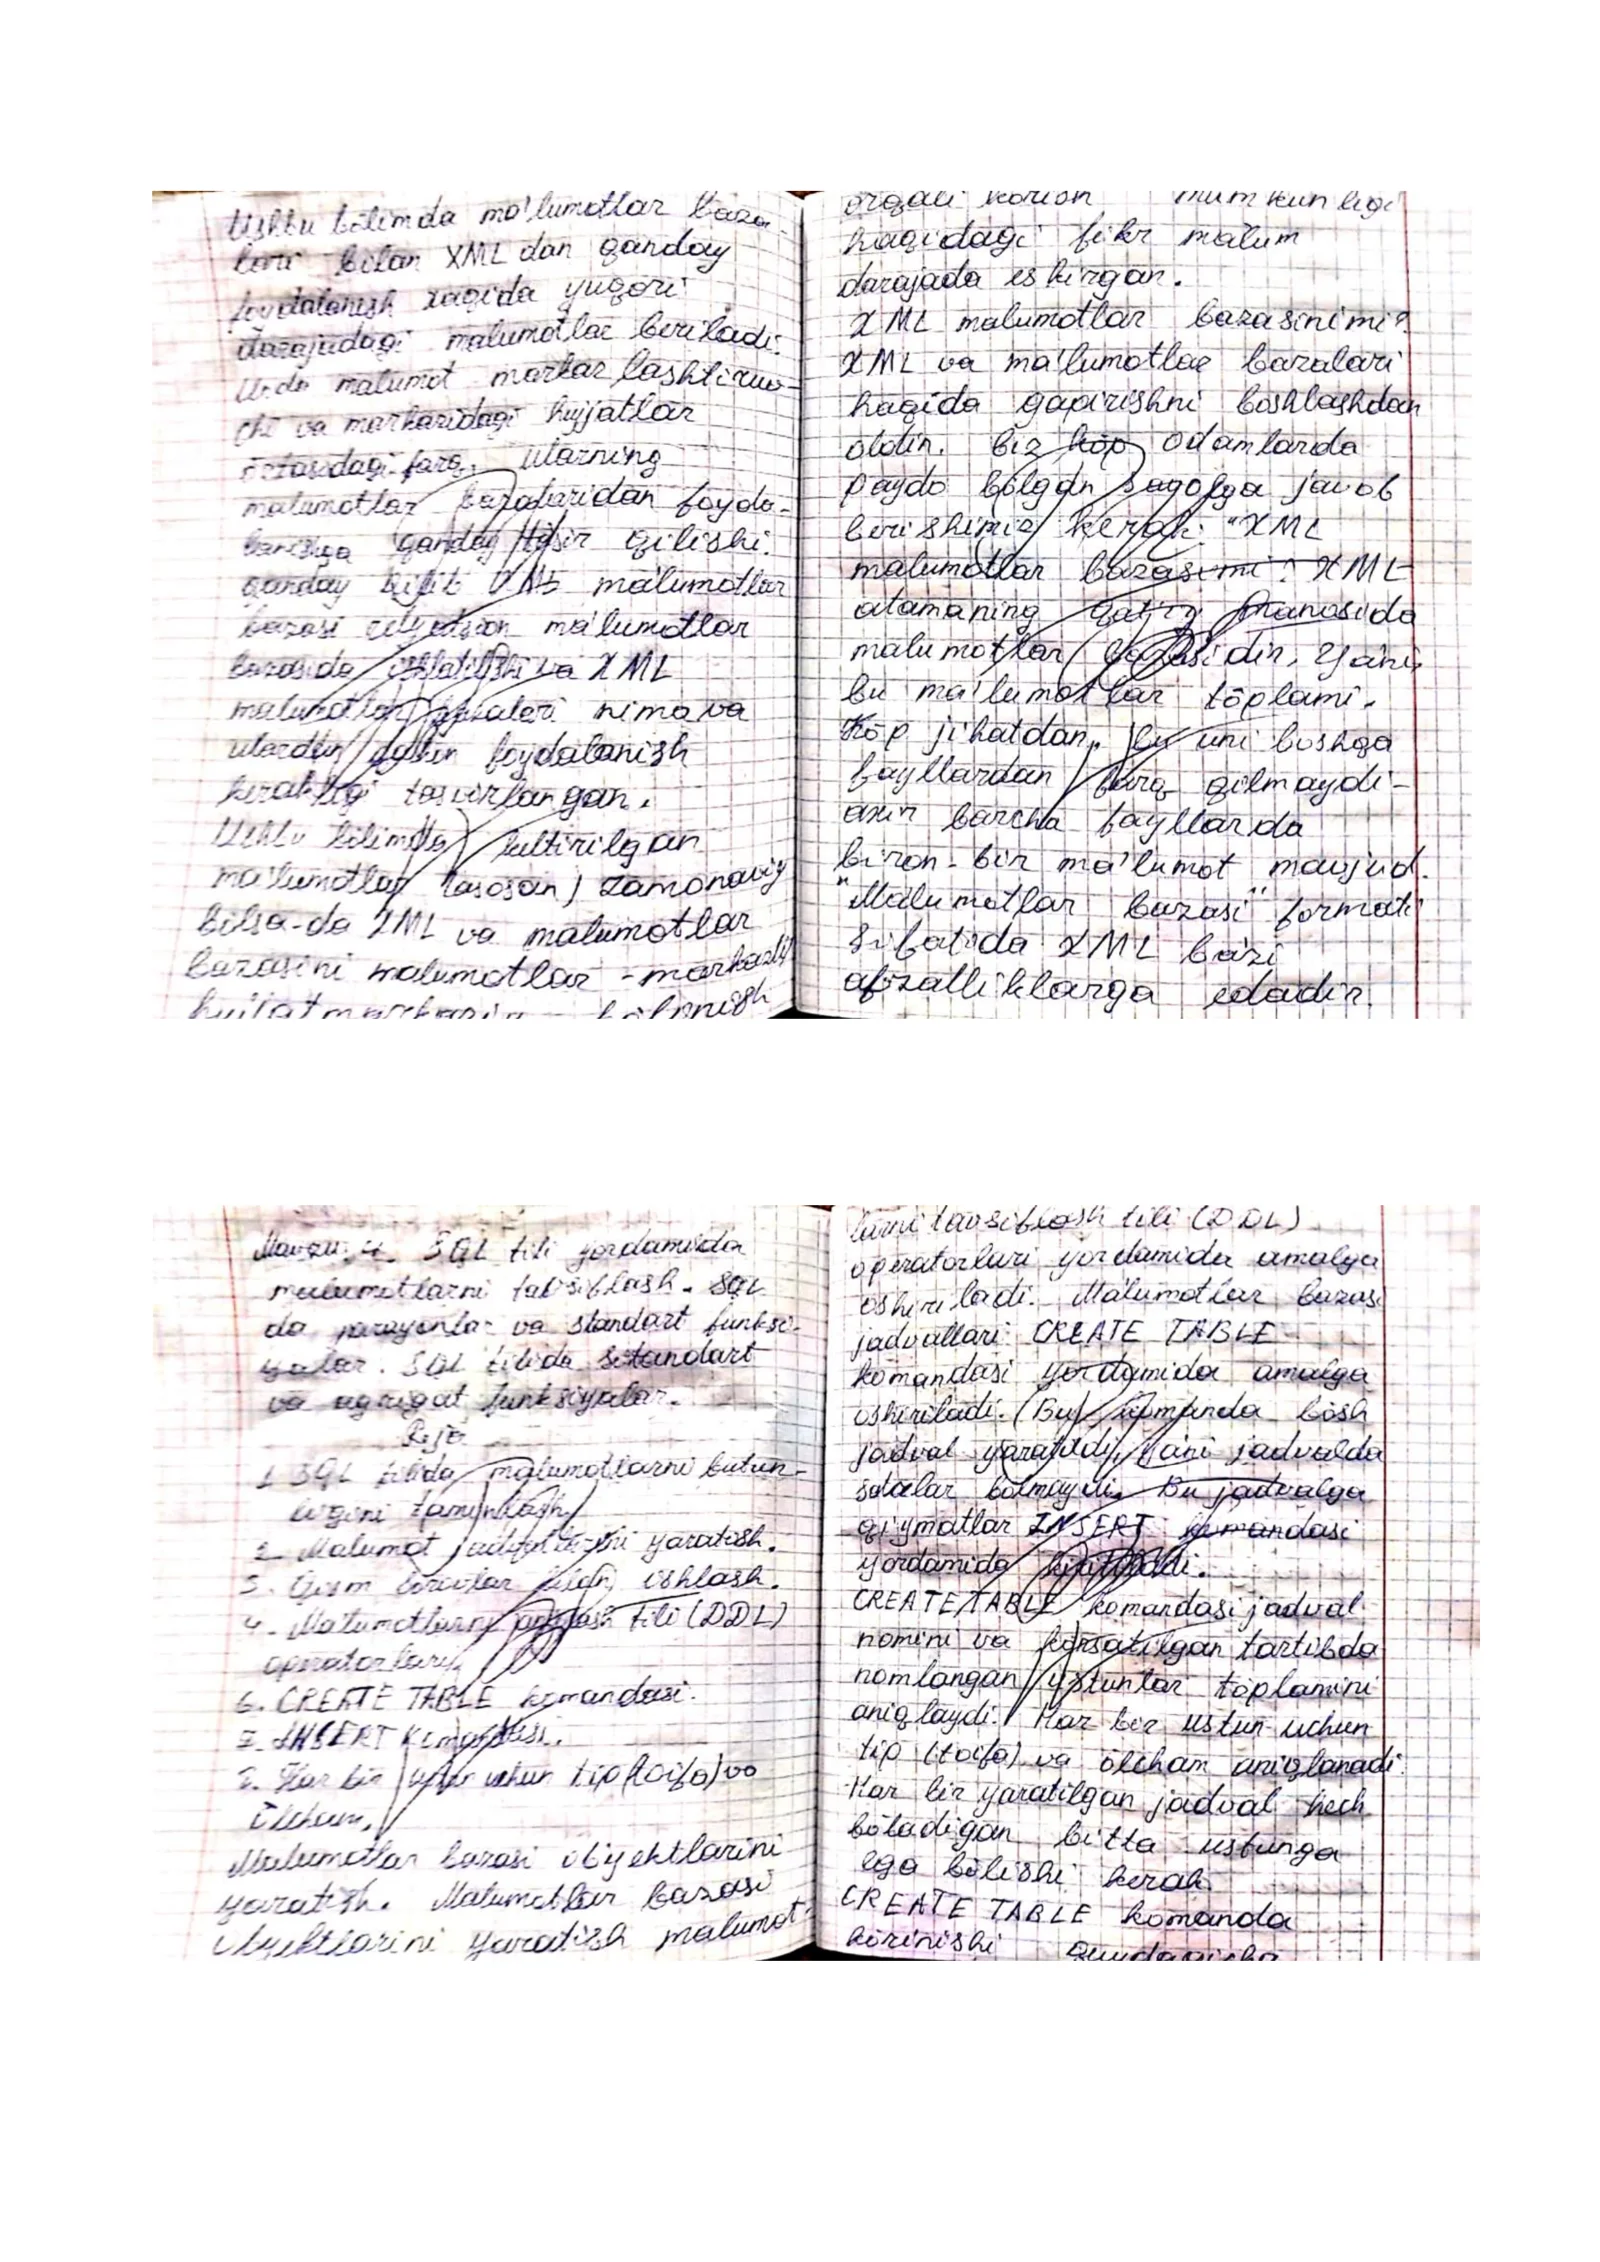 Ushbu bölimda ma'lumotlar baza-
lari bilan XML dan qanday
foydalanish xaqida yuqori
darajadagi malumotlar beriladi.
Unda malumot markazlashtiruv-
chi va markazidagi hujjatlar
örtasidagi farq, ularning
malumotlar bazalaridan foyda-
lanishga qanday tasir qilishi.
qanday qilib XML malumotlar
bazasi relyatsion ma'lumotlar
bazasida ishlatilishi va XML
malumotlar bazalari nima va
ulardan qachon foydalanish
kerakligi tasvirlangan.
Ushbu bölimda keltirilgan
ma'lumotlar (asosan) zamonaviy
bölsa-da XML va malumotlar
bazasini malumotlar - markazli
hujjatmarkazin - bölinish
orqali körish mumkunligi
haqidagi fikr malum
darajada eskirgan.
XML malumotlar bazasinimi?
XML va ma'lumotlar bazalari
haqida gapirishni boshlashdan
oldin. biz köp odamlarda
paydo bölgan savolga javob
berishimiz kerak: "XML
malumotlar bazasimi? XML
atamaning qat'iy manosida
malumotlar bazasidir. Yani,
bu ma'lumotlar töplami.
Köp jihatdan, bu uni boshqa
fayllardan farq qilmaydi-
axir barcha fayllarda
biron-bir ma'lumot mavjud.
"Malumotlar bazasi" formati
sifatida XML bazi
afzalliklarga edadir.
Mavzu: 4. SQL tili yordamida
malumotlarni tavsiflash. SQL
da jarayonlar va standart funksi-
yalar. SQL tilida sitandart
va agregat funksiyalar.
Reja
1. SQL tilida malumotlarni butun-
ligini taminlash
2. Malumot jadvallarini yaratish.
3. Qism sorovlar bilan ishlash.
4. Ma'lumotlarni aniqlash tili (DDL)
operatorlari.
6. CREATE TABLE komandasi.
7. INSERT Komandasi.
8. Har bir ustun uchun tip (toifa) va
ölcham.
Malumotlar bazasi obyektlarini
yaratish. Malumotlar bazasi
obyektlarini yaratish malumot-
larni tavsiflash tili (DDL)
operatorlari yordamida amalga
oshiriladi. Malumotlar bazasi
jadvallari CREATE TABLE
komandasi yordamida amalga
oshiriladi. (Bu) komanda bösh
jadval yaratildi, yani jadvalda
satrlar bolmaydi. Bu jadvalga
qiymatlar INSERT komandasi
yordamida kiritiladi.
CREATE TABLE komandasi jadval
nomini va körsatilgan tartibda
nomlangan ustunlar töplamini
aniqlaydi. Har bir ustun uchun
tip (toifa) va ölcham aniqlanadi.
Har bir yaratilgan jadval hech
böladigan bitta ustunga
ega bölishi kerak.
CREATE TABLE komanda
körinishi quydagicha